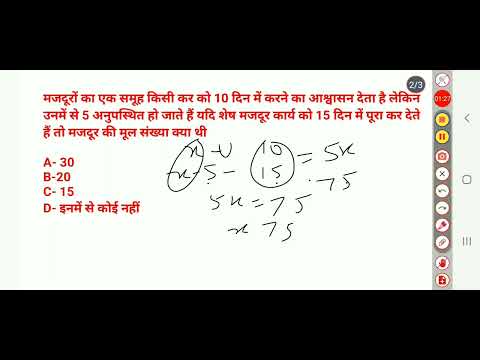 2/3
01:27
मजदूरों का एक समूह किसी कर को 10 दिन में करने का आश्वासन देता है लेकिन
उनमें से 5 अनुपस्थित हो जाते हैं यदि शेष मजदूर कार्य को 15 दिन में पूरा कर देते
हैं तो मजदूर की मूल संख्या क्या थी
A- 30
B-20
C- 15
D- इनमें से कोई नहीं
10 = 5x
x-5 - 15 . 75
5x = 75
x 75